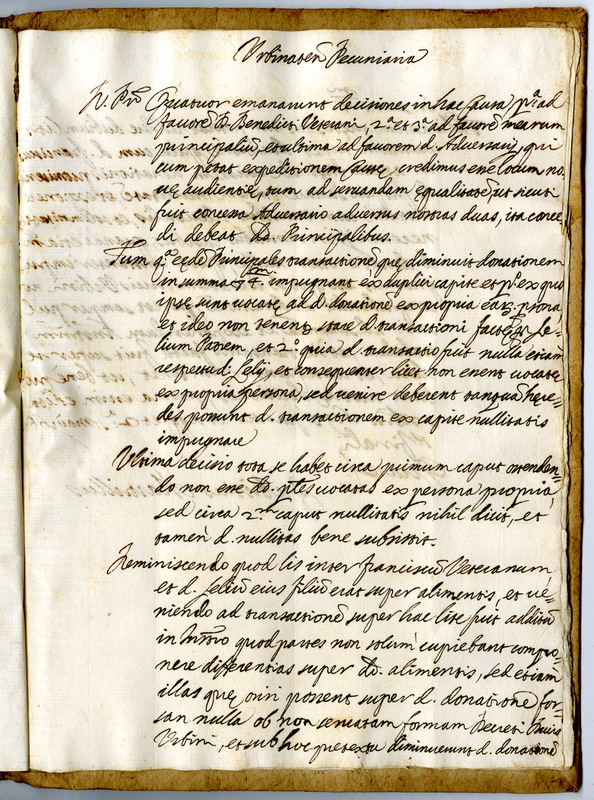 Urbinateñ Pecuniaria
Quatuor emanarunt decisiones in hac Causa pª ad
favorē D. Benedicti Veterani, 2ª et 3ª ad favorē mearum
principaliū, et ultima ad favorem d. Adversarij, qui
cum petat expeditionem Causę, credimus esse locum no-
uę audientię, tum ad seruandam ęqualitatē, ut sicuti
fuit concessa Adversario adversus nostras duas, ita conce
di debeat DD. Principalibus.
Tum qª eędē Principales transactionē quę diminuit donationem
in summa 4. impugnant ex duplici capite et pº ex quo
ipse sunt uocatę ad d. donationē ex propria earū persona
et ideo non tenent stare d. transactioni factę per Le-
lium Patrem, et 2º quia d. transactio fuit nulla etiam
respectu d. Lelij, et consequenter licet non essent uocatę
ex propria persona, sed venire deberent tanquā here-
des possunt d. transactionem ex capite nullitatis
impugnare
Ultima decisio tota se habet circa primum caput ostenden-
do non esse dd. ptes uocatas ex persona propria,
sed circa 2.m caput nullitatis nihil dicit, et
tamen d. nullitas bene subsistit.
Reminiscendo quod lis inter franciscū Veteranum
et d. Leliū eius filiū erat super alimentis, et ue-
niendo ad transactionē super hac lite fuit additū
in Instro quod partes non solum cupiebant compo-
nere differentias super dd. alimentis, sed etiam
illas quę oriri possent super d. donatione for-
san nulla ob non seruatam formam Decreti Ciuis
Urbini, et sub hoc pretextu diminuerunt d. donationē